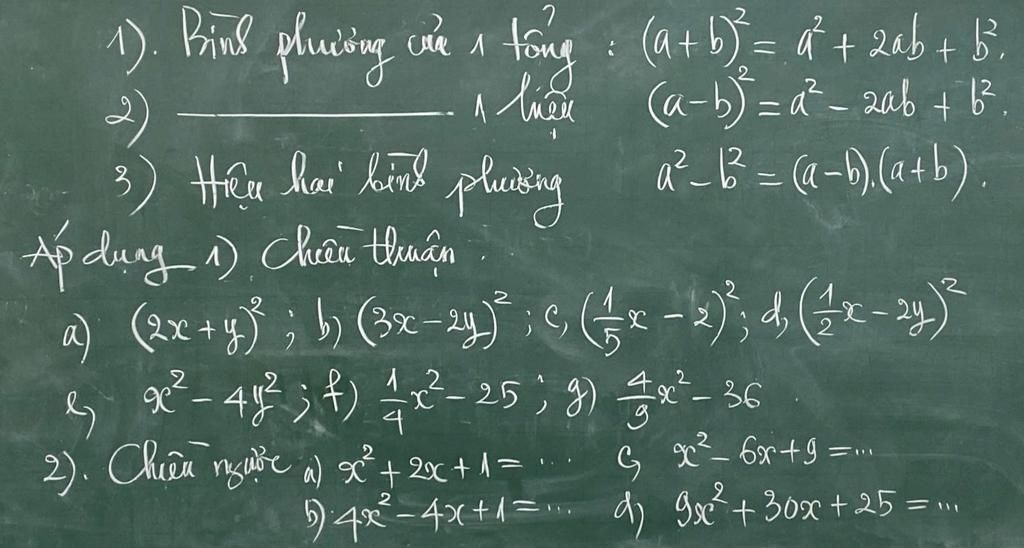 1). Bình phương của 1 tổng : (a+b)² = a² + 2ab + b².
2) ———— 1 hiệu (a-b)² = a² - 2ab + b².
3) Hiệu hai bình phương a² - b² = (a-b).(a+b).
Áp dụng 1). Chiều thuận.
a) (2x+y)²; b) (3x-2y)²; c, (1/5x - 2)²; d, (1/2x - 2y)²
e, x² - 4y²; f) 1/4x² - 25; g) 4/9x² - 36.
2). Chiều ngược a) x² + 2x + 1 = ... c, x² - 6x + 9 = ...
b) 4x² - 4x + 1 = ... d, 9x² + 30x + 25 = ...